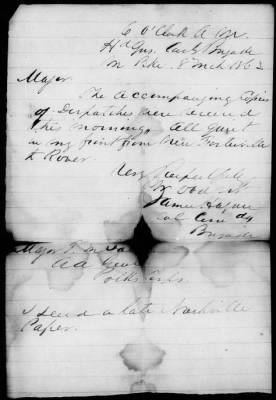 6 O'Clock A M
Hd Qrs. Cav Brigade
8 Mch 1863
Major.
The accompanying Copies
of Dispatches were received
this morning. All quiet
in my front from
to Rover.
Very Respectfully
Yr obd st
James Hagan
Col Comdg
Brigade
Major
A A Genl
Polk's Corps.
I send a late Nashville
Paper.